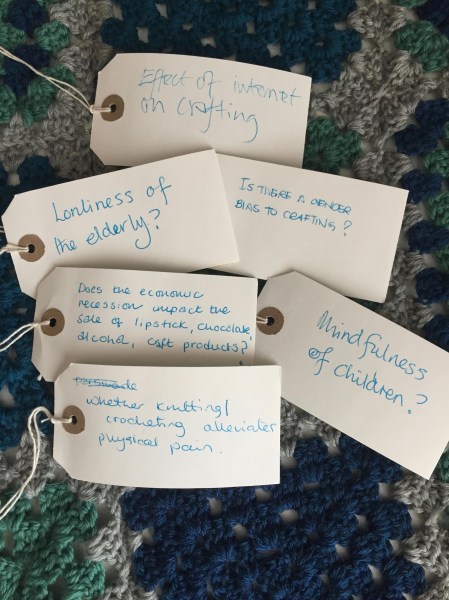 Effect of internet
on crafting
Lonliness of
the elderly?
IS THERE A GENDER
BIAS TO CRAFTING?
Does the economic
recession impact the
sale of lipstick, chocolate,
alcohol, craft products?
Mindfulness
of children?
whether knitting/
crocheting alleviates
physical pain.